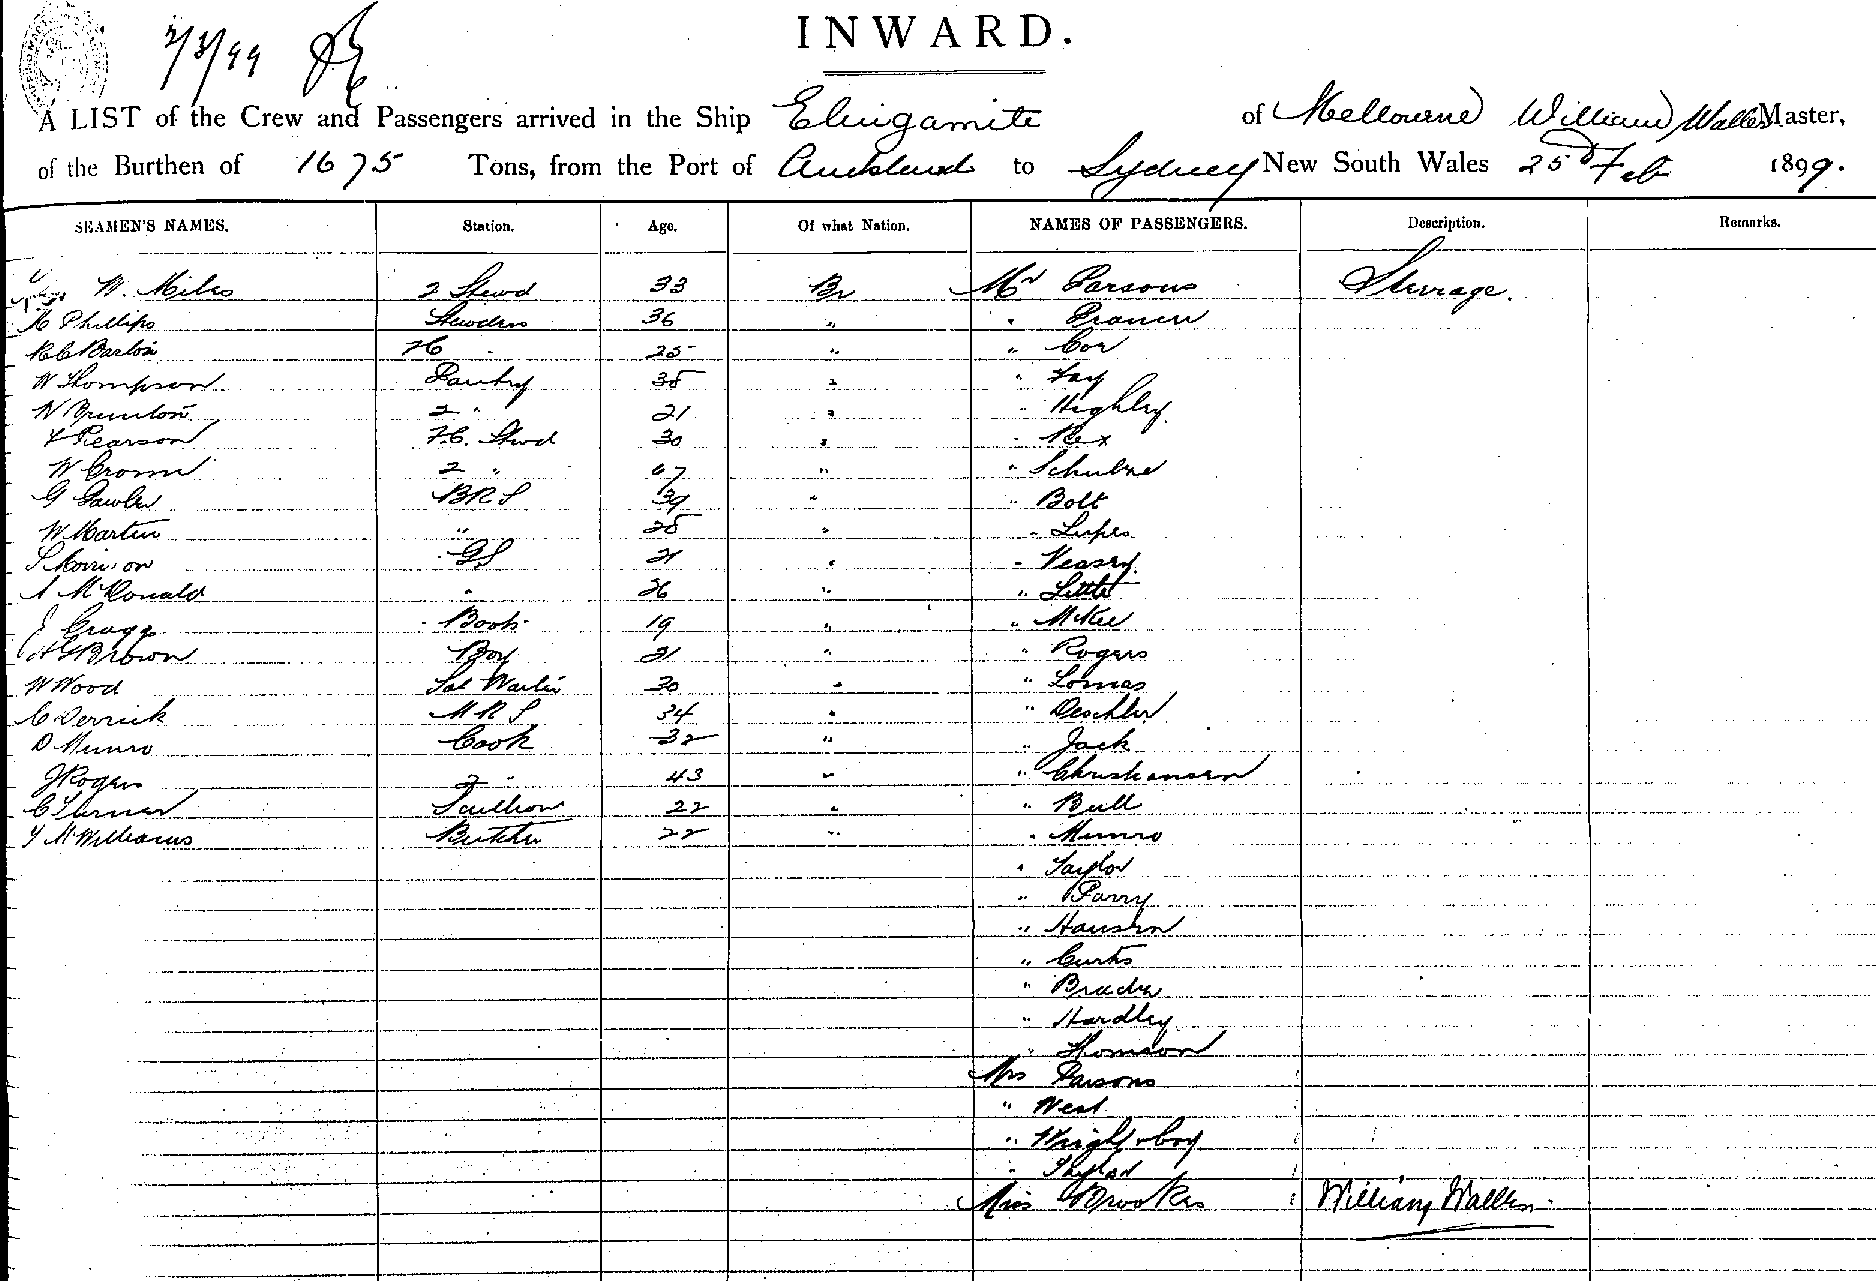 INWARD.
2/3/99
A LIST of the Crew and Passengers arrived in the Ship Elingamite of Melbourne William Waller Master,
of the Burthen of 1675 Tons, from the Port of Auckland to Sydney New South Wales 25 Feb 1899.
SEAMEN'S NAMES. Station. Age. Of what Nation. NAMES OF PASSENGERS. Description. Remarks.
W. Miles 2 Stewd 33 Br Mr Parsons Steerage.
Phillips 36 " "
Barton 25 " "
W Thompson Pantry 35 " " Fay
W Brunton 2 " 21 " " Highley
Pearson F.C. Stwd 30 " " Rex
W 2 " " "
G Lawler BRS 39 " " Bolt
W Martin " 25 " "
S Morrison GS 21 " " Veasey
A McDonald " 26 " " Little
J Cragg Boots 19 " " McKee
Brown Boy 21 " " Rogers
W Wood 30 " " Lomas
C Derrick MRS 34 " " Deschler
D Munro Cook 32 " " Jack
J Rogers 2 " 43 " " Christiansen
C Scullion 22 " " Bull
McWilliams Butcher 22 " " Munro
" Taylor
" Parry
" Hansen
" Curtis
"
" Hardley
" Thomson
Mrs Parsons
" West
" Wright & boy
" Taylor
Miss Brookes William Waller